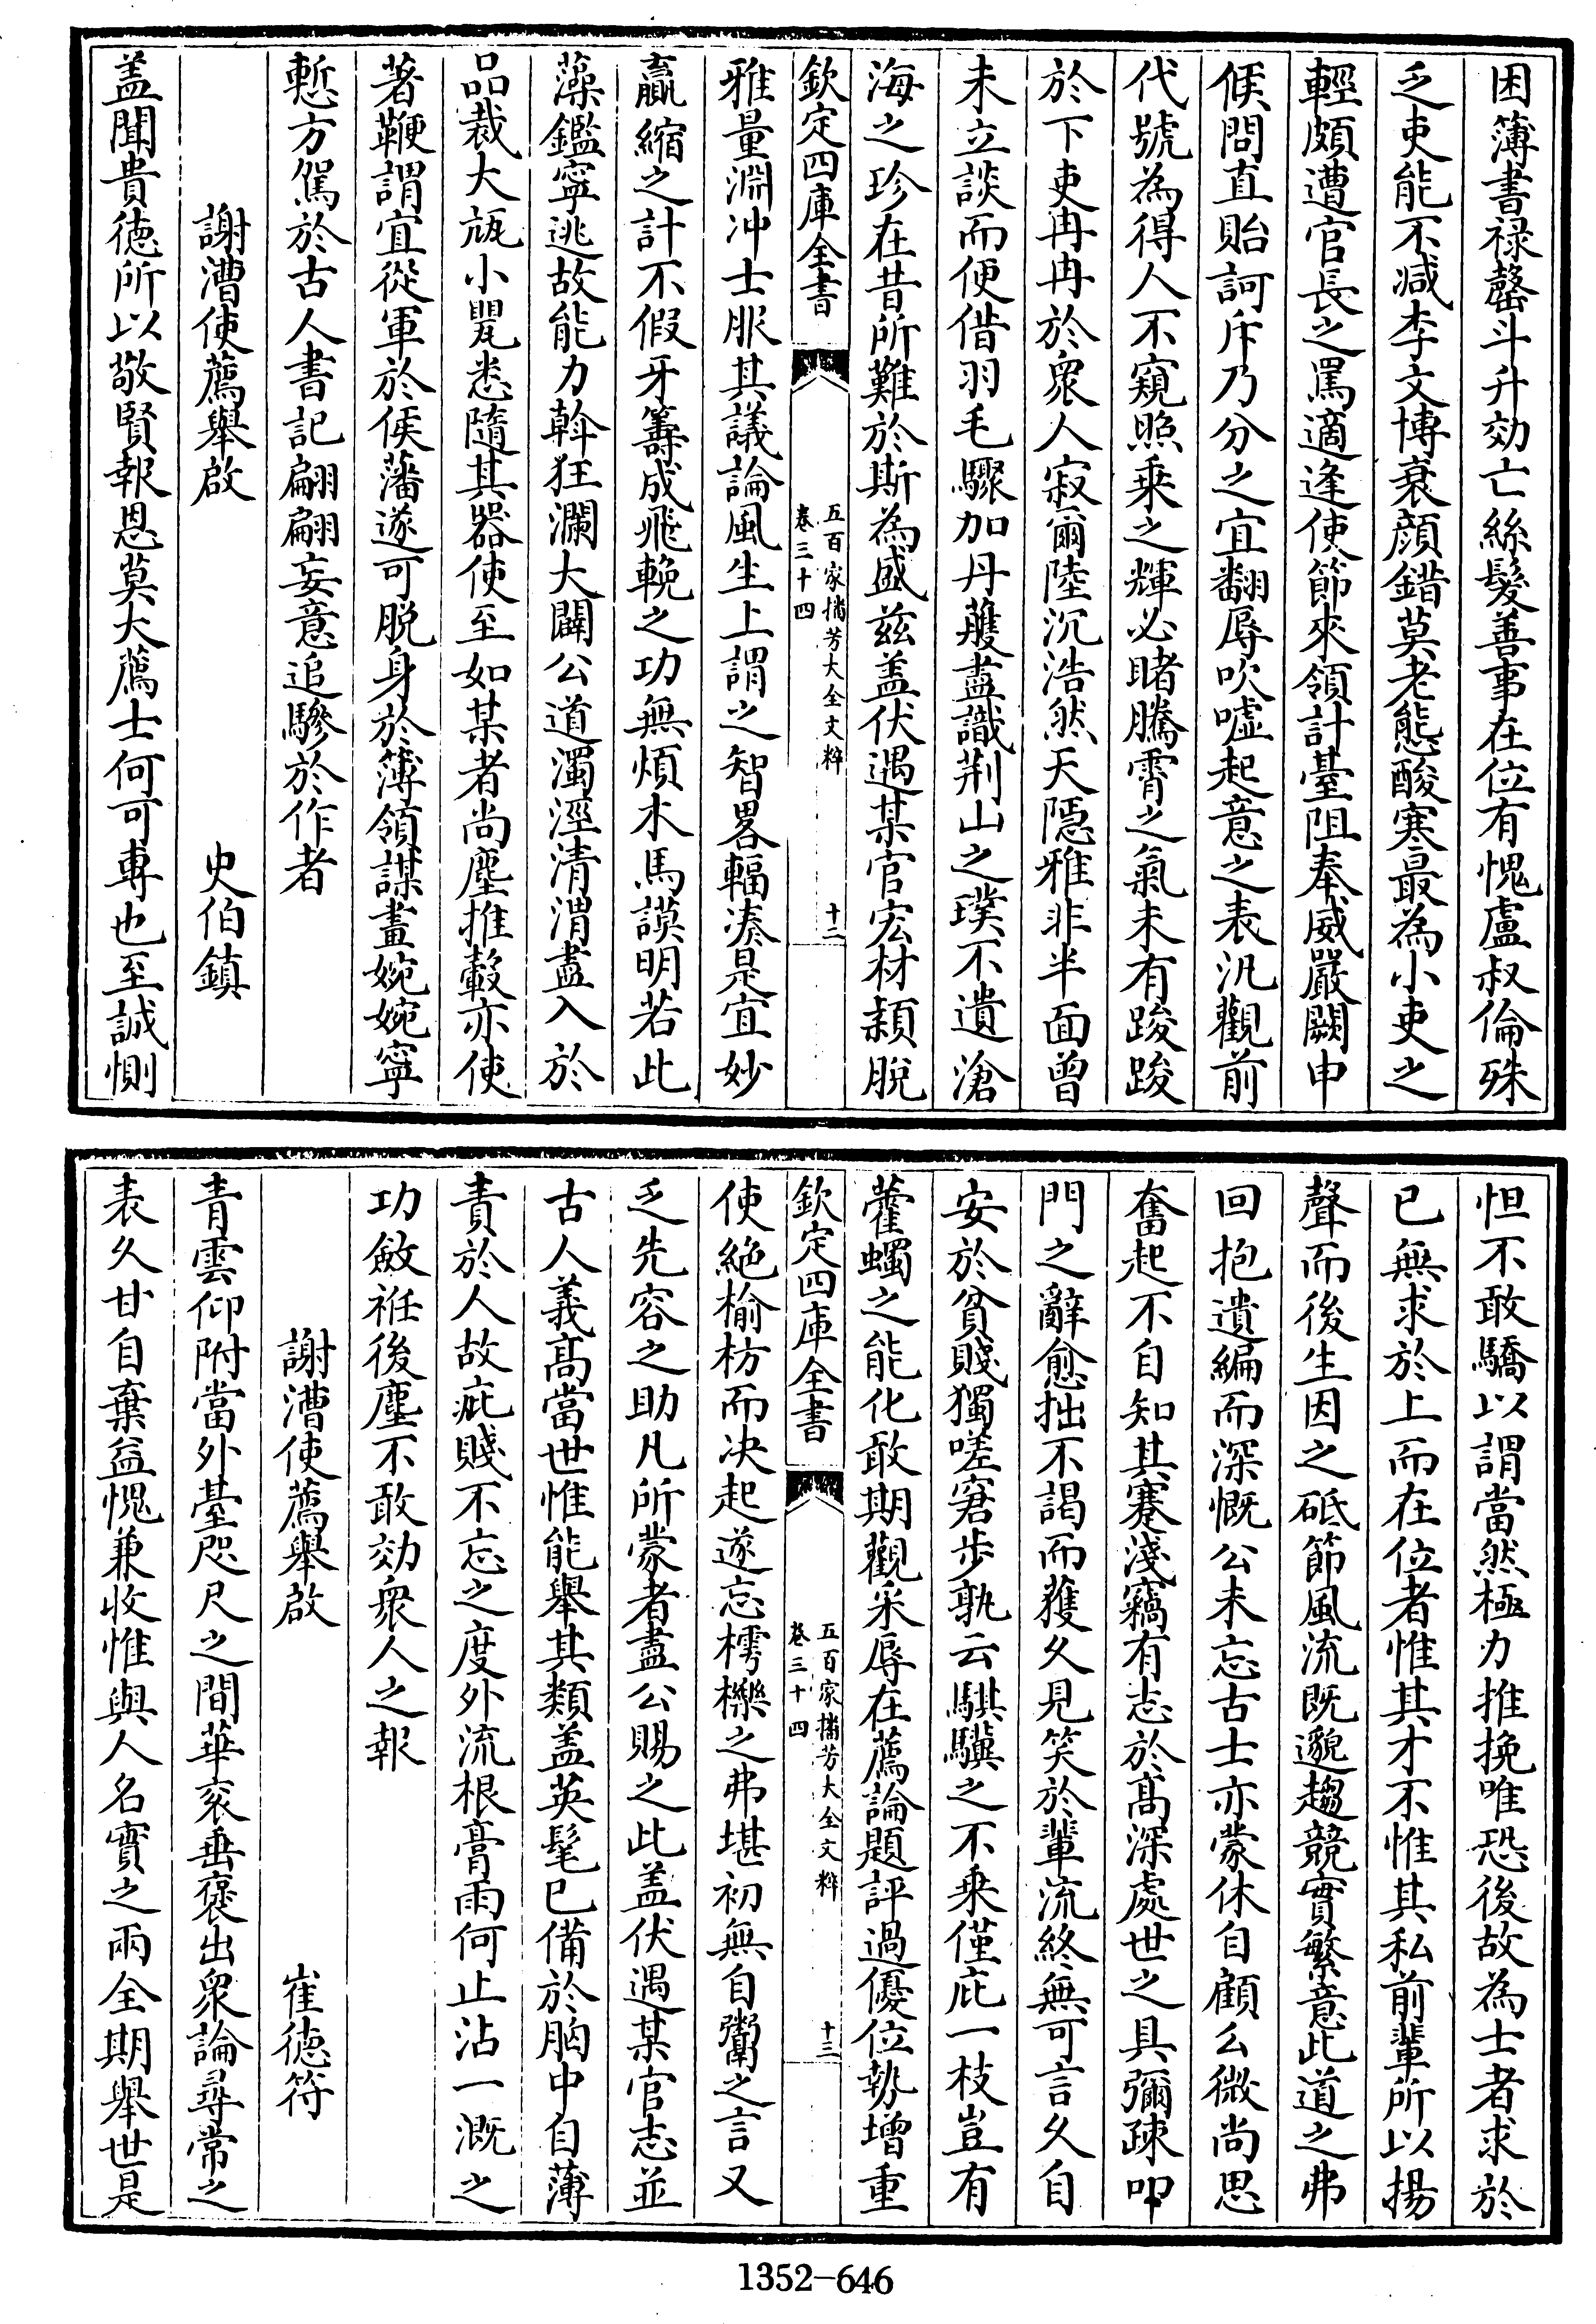 困簿書禄罄斗升効亡絲髮善事在位有愧盧叔倫殊
乏吏能不减李文博衰顔錯莫老態酸寒最為小吏之
輕頗遭官長之罵適逢使節來領計臺阻奉威嚴闕申
候問直貽訶斥乃分之宜翻辱吹嘘起意之表汎觀前
代號為得人不窺照乗之輝必睹騰霄之氣未有踆踆
於下吏冉冉於衆人寂爾陸沉浩然天隠雅非半面曾
未立談而便借羽毛驟加丹雘盡識荆山之璞不遺滄
海之珍在昔所難於斯為盛兹盖伏遇某官宏材穎脱
欽定四庫全書
五百家播芳大全文粹
卷三十四
十二
雅量淵冲士服其議論風生上謂之智畧輻凑是宜妙
贏縮之計不假牙籌成飛輓之功無煩木馬謨明若此
藻鑑寜逃故能力斡狂瀾大闢公道濁涇清渭盡入於
品裁大瓻小甖悉隨其器使至如某者尚塵推轂亦使
著鞭謂宜從軍於侯藩遂可脱身於簿領謀畫婉婉寜
慙方駕於古人書記翩翩妄意追驂於作者
謝漕使薦舉啟
史伯鎮
盖聞貴徳所以敬賢報恩莫大薦士何可専也至誠惻
怛不敢驕以謂當然極力推挽唯恐後故為士者求於
已無求於上而在位者惟其才不惟其私前輩所以揚
聲而後生因之砥節風流既邈趨競實繁意此道之弗
回抱遺編而深慨公未忘古士亦蒙休自顧幺微尚思
奮起不自知其蹇淺竊有志於髙深處世之具彌疎叩
門之辭愈拙不謁而獲久見笑於輩流終無可言久自
安於貧賤獨嗟窘步孰云騏驥之不乗僅庇一枝豈有
藿蠋之能化敢期觀采辱在薦論題評過優位勢增重
欽定四庫全書
五百家播芳大全文粹
卷三十四
十三
使絶榆枋而决起遂忘樗櫟之弗堪初無自鬻之言又
乏先容之助凡所蒙者盡公賜之此盖伏遇某官志並
古人義髙當世惟能舉其類盖英髦已備於胸中自薄
責於人故疵賤不忘之度外流根膏雨何止沾一溉之
功斂袵後塵不敢効衆人之報
謝漕使薦舉啟
崔徳符
青雲仰附當外臺咫尺之間華衮垂褒出衆論尋常之
表久甘自棄益愧兼收惟與人名實之兩全期舉世是
1352-646